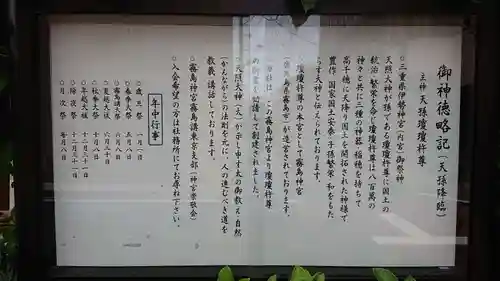 御神徳略記(天孫降臨)
主神 天孫瓊瓊杵尊
○三重県伊勢神宮(内宮)御祭神
天照大神が孫である瓊瓊杵尊に国土の
統治・繁栄を命じ瓊瓊杵尊は八百萬の
神々と共に三種の神器・稲穂を持ちて
高千穂に天降り国土を開拓された神様で
豊作・国家国土安泰・子孫繁栄・和をもた
らす大神と伝えられております。
瓊瓊杵尊の本宮として霧島神宮
(鹿児島県霧島市)が造営されております。
当社は、この霧島神宮より瓊瓊杵尊
の御霊を勧請して創建されました。
○天照大神(天)から申す大の御教え・自然
(かんながら)の法則を元に、人の進むべき道を
教義・講話しております。
○霧島神宮霧島講東京支部(神宮崇敬会)
○入会希望の方は社務所にてお尋ね下さい。
年中行事
○歳旦祭 一月一日
○春季大祭 四月八日
○霧島講大祭 五月八日
○夏越大祓 六月三十日
○秋季大祭 十月八日
○年越大祓 十二月三十一日
○除夜祭 十二月三十一日
○月次祭 毎月八日